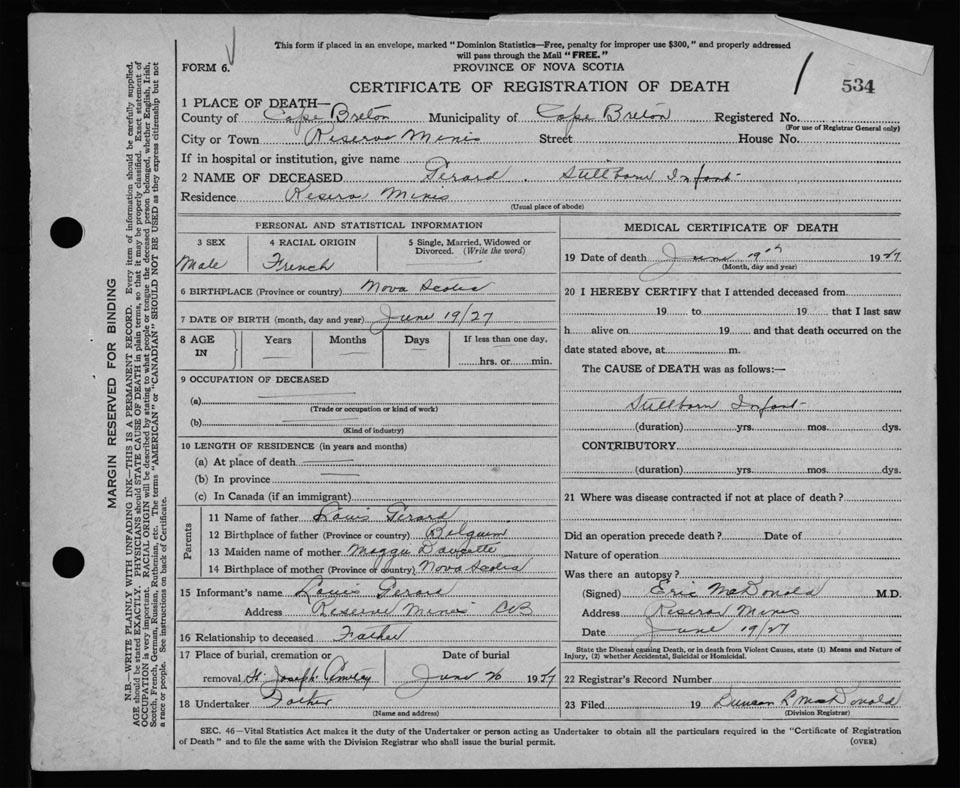 This form if placed in an envelope, marked "Dominion Statistics—Free, penalty for improper use $300," and properly addressed
will pass through the Mail "FREE."
FORM 6.
PROVINCE OF NOVA SCOTIA
CERTIFICATE OF REGISTRATION OF DEATH
534
1 PLACE OF DEATH—
County of Cape Breton Municipality of Cape Breton Registered No.
(For use of Registrar General only)
City or Town Reserve Mines Street House No.
If in hospital or institution, give name
2 NAME OF DECEASED Gerard . Stillborn Infant
Residence Reserve Mines
(Usual place of abode)
PERSONAL AND STATISTICAL INFORMATION
3 SEX 4 RACIAL ORIGIN 5 Single, Married, Widowed or
Divorced. (Write the word)
Male French
6 BIRTHPLACE (Province or country) Nova Scotia
7 DATE OF BIRTH (month, day and year) June 19/27
8 AGE IN Years Months Days If less than one day,
hrs. or min.
9 OCCUPATION OF DECEASED
(a)
(Trade or occupation or kind of work)
(b)
(Kind of industry)
10 LENGTH OF RESIDENCE (in years and months)
(a) At place of death
(b) In province
(c) In Canada (if an immigrant)
Parents
11 Name of father Louis Gerard
12 Birthplace of father (Province or country) Belgium
13 Maiden name of mother Maggie
14 Birthplace of mother (Province or country) Nova Scotia
15 Informant's name Louis Gerard
Address Reserve Mines CB
16 Relationship to deceased Father
17 Place of burial, cremation or Date of burial
removal St. Joseph June 26 1927
18 Undertaker Father
(Name and address)
MEDICAL CERTIFICATE OF DEATH
19 Date of death June 19th 1927
(Month, day and year)
20 I HEREBY CERTIFY that I attended deceased from
19 to 19 that I last saw
h alive on 19 and that death occurred on the
date stated above, at m.
The CAUSE of DEATH was as follows:—
Stillborn Infant
(duration) yrs. mos. dys.
CONTRIBUTORY
(duration) yrs. mos. dys.
21 Where was disease contracted if not at place of death?
Did an operation precede death? Date of
Nature of operation
Was there an autopsy?
(Signed) Eric MacDonald M.D.
Address Reserve Mines
Date June 19/27
State the Disease causing Death, or in death from Violent Causes, state (1) Means and Nature of
Injury, (2) whether Accidental, Suicidal or Homicidal.
22 Registrar's Record Number
23 Filed 19 Duncan L MacDonald
(Division Registrar)
SEC. 46—Vital Statistics Act makes it the duty of the Undertaker or person acting as Undertaker to obtain all the particulars required in the "Certificate of Registration
of Death" and to file the same with the Division Registrar who shall issue the burial permit.
(OVER)
MARGIN RESERVED FOR BINDING
N.B.—WRITE PLAINLY WITH UNFADING INK—THIS IS A PERMANENT RECORD. Every item of information should be carefully supplied.
AGE should be stated EXACTLY. PHYSICIANS should STATE CAUSE OF DEATH in plain terms, so that it may be properly classified. Exact statement of
OCCUPATION is very important. RACIAL ORIGIN will be described by stating to what people or tongue the deceased person belonged, whether English, Irish,
Scotch, French, German, Russian, Ruthenian, etc. The terms "AMERICAN" or "CANADIAN" SHOULD NOT BE USED as they express citizenship but not
a race or people. See instructions on back of Certificate.